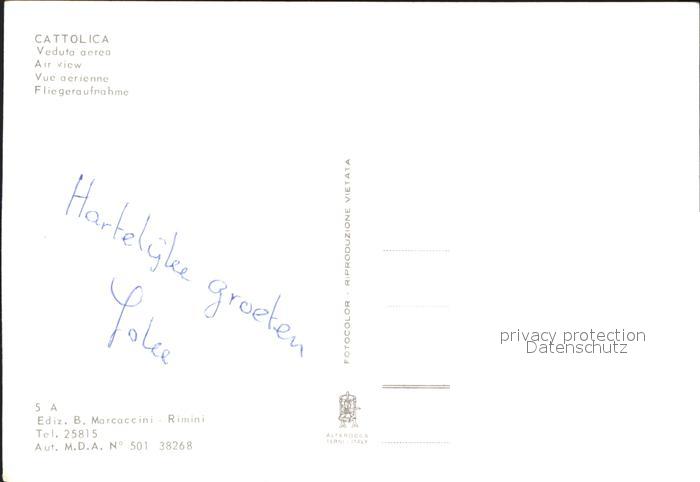 CATTOLICA
Veduta aerea
Air view
Vue aerienne
Fliegeraufnahme
Hartelijke groeten
FOTOCOLOR - RIPRODUZIONE VIETATA
privacy protection
Datenschutz
5 A
Ediz. B. Marcaccini - Rimini
Tel. 25815
Aut. M.D.A. N° 501 38268
ALTEROCCA
TERNI - ITALY